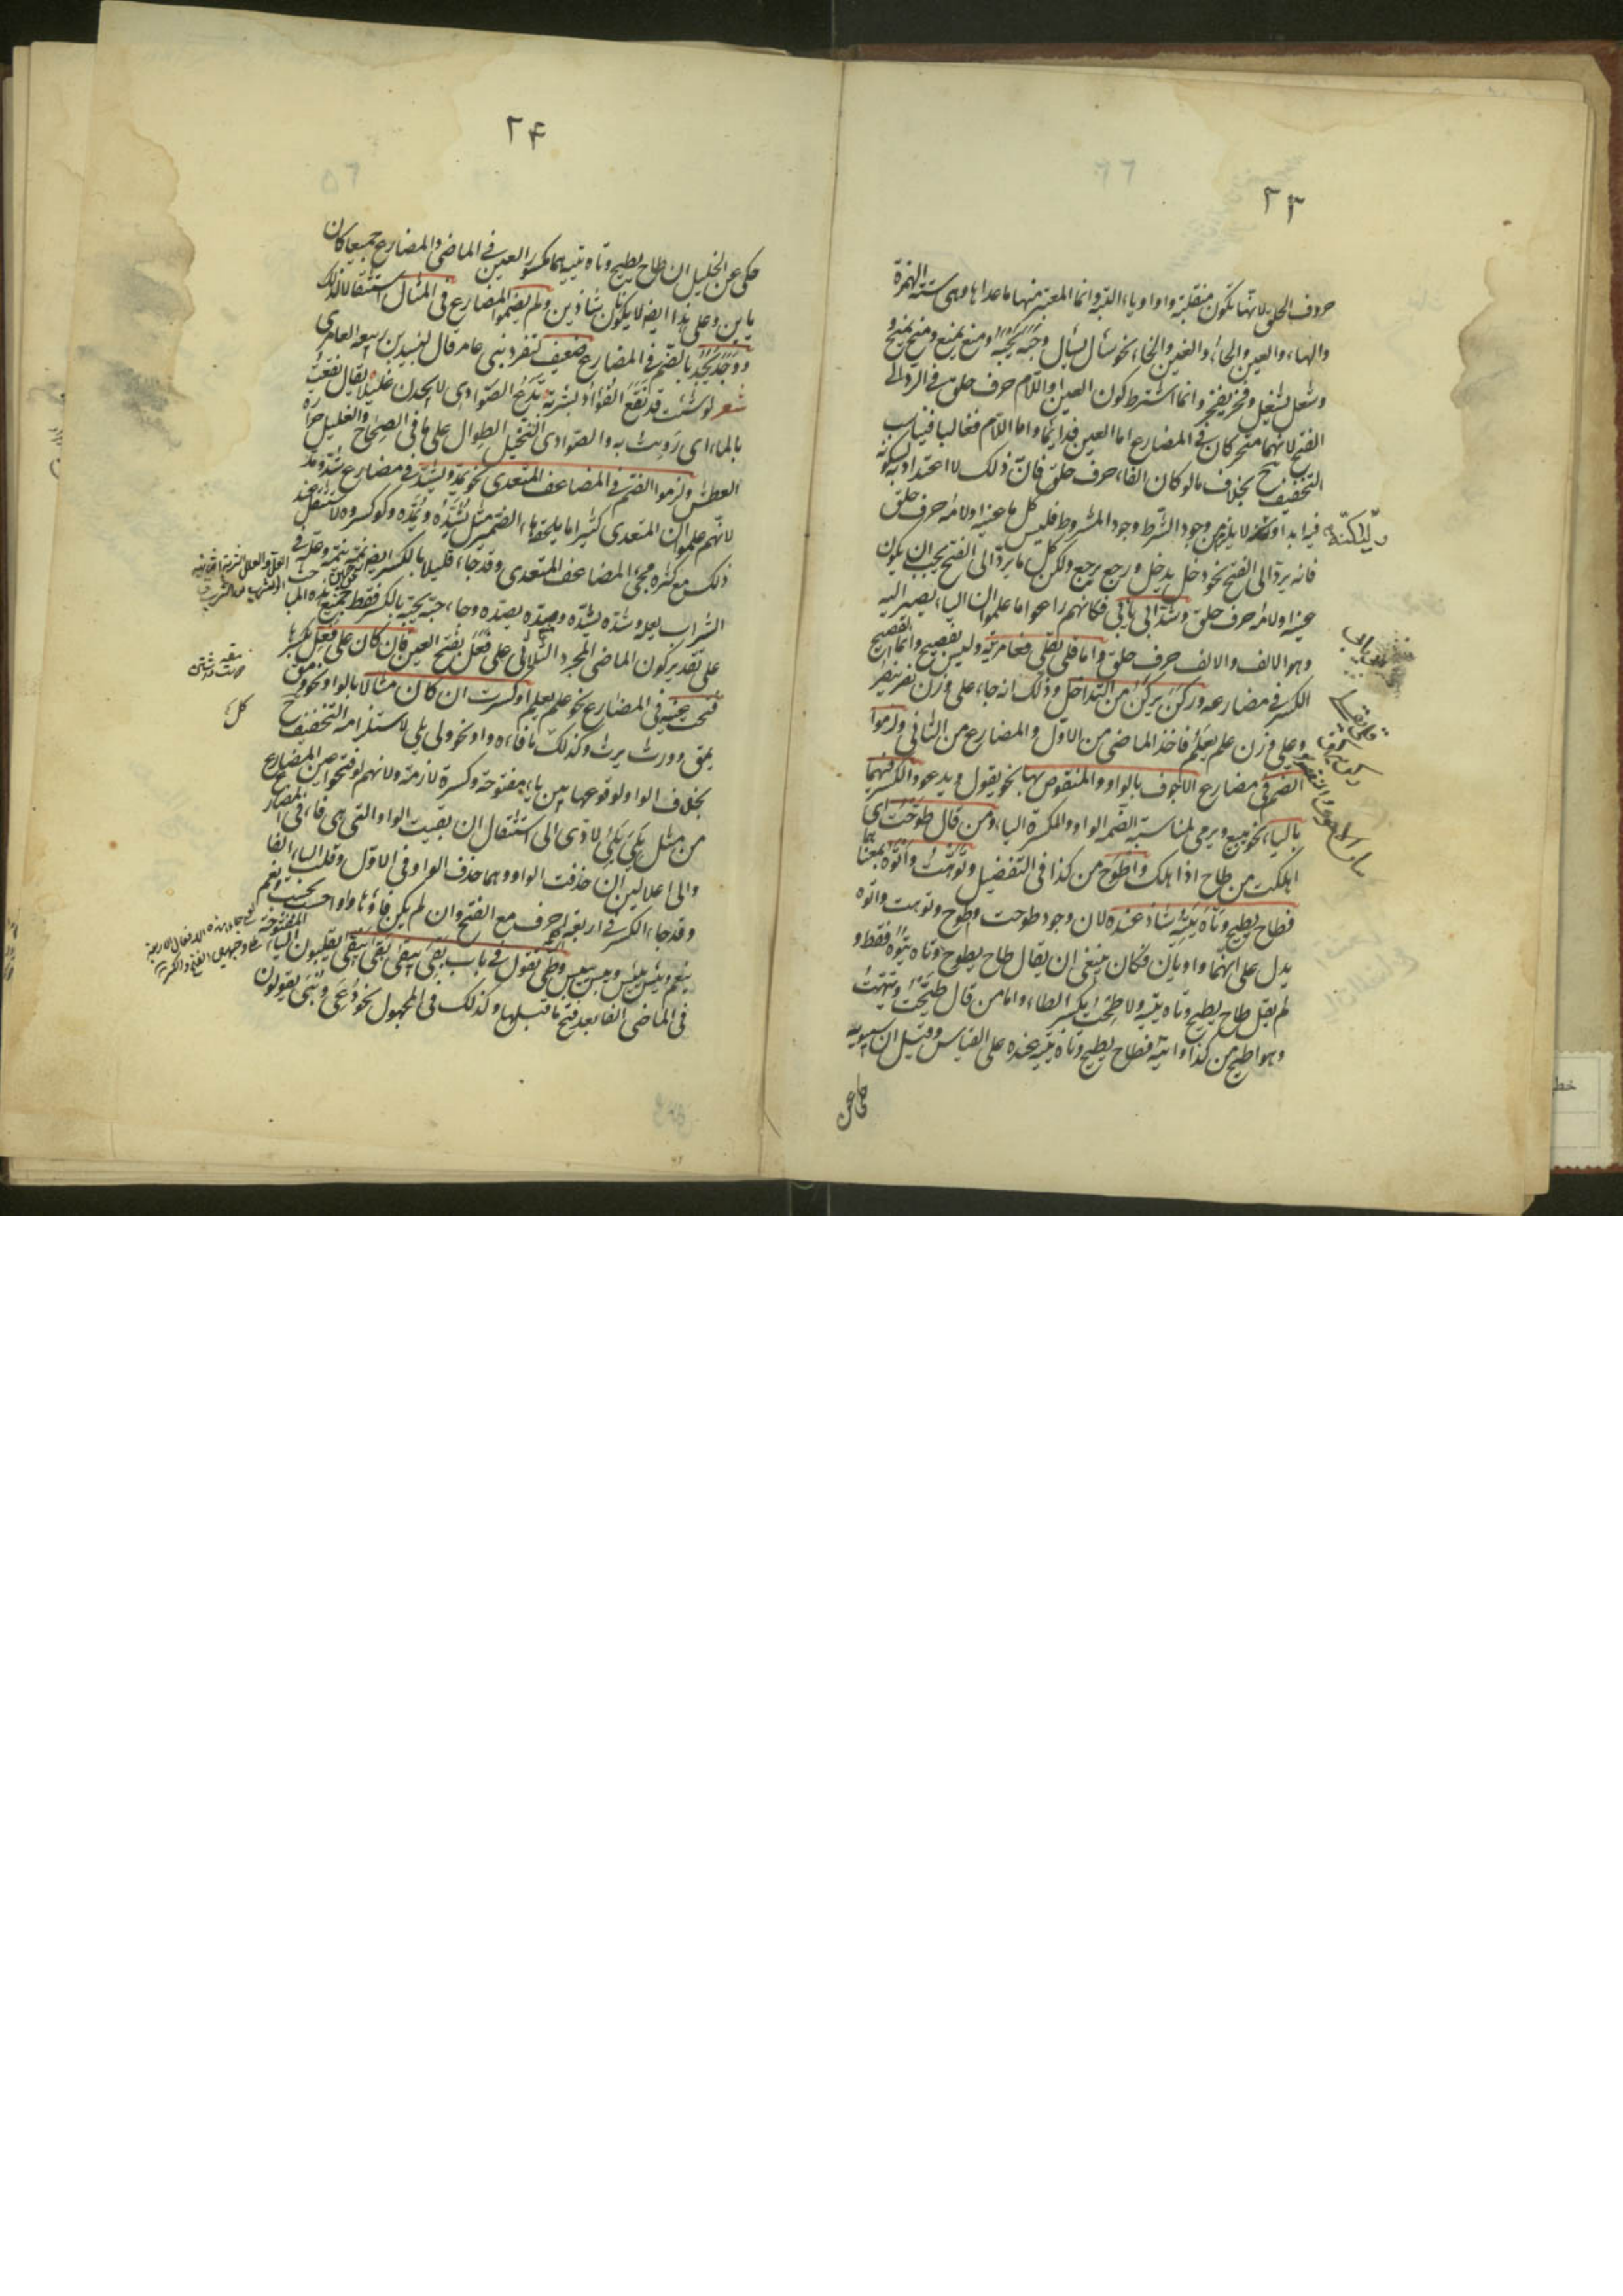 ٢٣
حروف الحلق لانها تكون منقلبة واوا وياء البتة وانما المعتبر منها ما عداها وهى ستة الهمزة
والهاء والعين والحاء والغين والخاء نحو سأل يسأل وجبه يجبه ومنع يمنع ومنح يمنح و
وشغل يشغل وفخر يفخر وانما اشترط كون العين او اللام حرف حلق فى الرد الى
الفتح لانهما متحركان فى المضارع اما العين فدائما واما اللام فغالبا فيناسب
التخفيف بخلاف ما لو كان الفاء حرف حلق فان ذلك لا اعتداد به لسكونه
فيه ابدا ولكنه لا يلزم من وجود الشرط وجود المشروط فليس كل ما عينه او لامه حرف حلق
فانه يرد الى الفتح نحو دخل يدخل ورجع يرجع ولكن كل ما يرد الى الفتح يجب ان يكون
عينه او لامه حرف حلق وشذ ابى يأبى فكانهم راعوا ما علموا ان الياء يصير اليه
وهو الالف والالف حرف حلق واما قلى يقلى فعامرية وليس بفصيح وانما الفصيح
الكسر فى مضارعه وركن يركن من التداخل وذلك انه جاء على وزن نصر ينصر
وعلى وزن علم يعلم فاخذ الماضى من الاول والمضارع من الثانى ولزموا
الضم فى مضارع الاجوف بالواو والمنقوص بها نحو يقول ويدعو والكسر فيهما
بالياء نحو يبيع ويرمى لمناسبة الضمة الواو والكسرة الياء ومن قال طوحت اى
اهلكت من طاح اذا هلك واطوح من كذا فى التفضيل وتوهت واتوه بمعناهما
فطاح يطيح وتاه يتيه شاذ عنده لان وجود طوحت واطوح وتوهت واتوه
يدل على انهما واويان فكان ينبغى ان يقال طاح يطوح وتاه يتوه فقط و
لم يقل طاح يطيح وتاه يتيه ولا طحت بكسر الطاء واما من قال طيحت وتيهت
وهو اطيح من كذا واتيه فطاح يطيح وتاه يتيه عنده على القياس وقيل ان سيبويه
حكى عن
٢۴
حكى عن الخليل ان طاح يطيح وتاه يتيه هما مكسور العين فى الماضى والمضارع جميعا كان
يابن وعلى هذا ايضا لا يكونان شاذين ولم يضموا المضارع فى المثال استثقالا لذلك
ووجد يجد بالضم فى المضارع ضعيف تنفرد بنى عامر قال لبيد بن ربيعه العامرى
شعر لو شئت قد نقع الفؤاد بشربة تدع الصوادى لا يجدن غليلا يقال نقعت
بالماء اى رويت به والصوادى النخيل الطوال على ما فى الصحاح والغليل حرارة
العطش ولزموا الضم فى المضاعف المتعدى نحو يمد ويشد فى مضارع شد ومد
لانهم علموا ان المتعدى كثيرا ما يلحقها الضمير مثل يشده ويمده ولو كسروه لاستثقل عند
ذلك مع كثرة مجىء المضاعف المتعدى وقد جاء قليلا بالكسر ايضا نحو نمه ينمه وعله فى
الشراب يعله وشده يشده وصده يصده وجاء حبه يحبه بالكسر فقط جميع هذه المبا
على تقدير كون الماضى المجرد الثلاثى على فعل بفتح العين فان كان على فعل بكسرها
فتحت عينه فى المضارع نحو علم يعلم او كسرت ان كان مثالا بالواو نحو ومق
يمق وورث يرث وكذلك ما فاءه واو نحو ولى يلى لاستلزامه التخفيف ح
بخلاف الواو لوقوعها بين ياء مفتوحة وكسرة لازمة ولانهم لو فتحوا عين المضارع
من مثل يلى لادى الى استثقال ان بقيت الواو التى هى فاء فى المضارع
والى اعلالين ان حذفت الواو وهما حذف الواو فى الاول وقلب الياء الفا
وقد جاء الكسر فى اربعة احرف مع الفتح وان لم يكن فاؤها واوا حسب يحسب ونعم
ينعم ويئس ييئس ويبس ييبس وطى تقول فى باب بقى يبقى بقى يبقى يقلبون الياء المفتوحة
فى الماضى الفا بعد فتح ما قبلها وكذلك فى المجهول نحو دعى وبنى يقولون